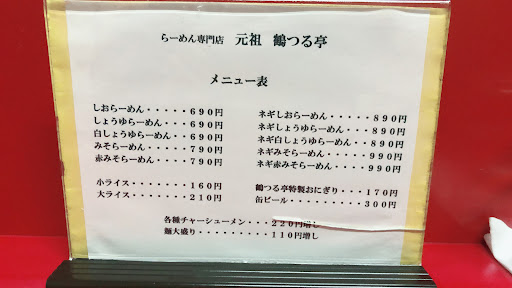 らーめん専門店 元祖 鶴つる亭
メニュー表
しおらーめん・・・・・690円
しょうゆらーめん・・・690円
白しょうゆらーめん・・690円
みそらーめん・・・・・790円
赤みそらーめん・・・・790円
小ライス・・・・・・・160円
大ライス・・・・・・・210円
ネギしおらーめん・・・・・890円
ネギしょうゆらーめん・・・890円
ネギ白しょうゆらーめん・・890円
ネギみそらーめん・・・・・990円
ネギ赤みそらーめん・・・・990円
鶴つる亭特製おにぎり・・・170円
缶ビール・・・・・・・・・300円
各種チャーシューメン・・・220円増し
麺大盛り・・・・・・・・・110円増し